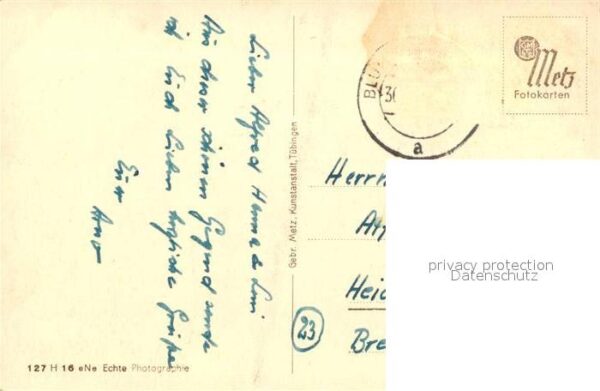 Lieber Alfred Hanne & Loni
Aus dieser schönen Gegend sende
ich Euch Lieben herzliche Grüße
Euer
Arno
127 H 16 eNe Echte Photographie
Gebr. Metz, Kunstanstalt, Tübingen
BLU
30
a
Metz
Fotokarten
Herrn
Heid
Bre
23
privacy protection
Datenschutz